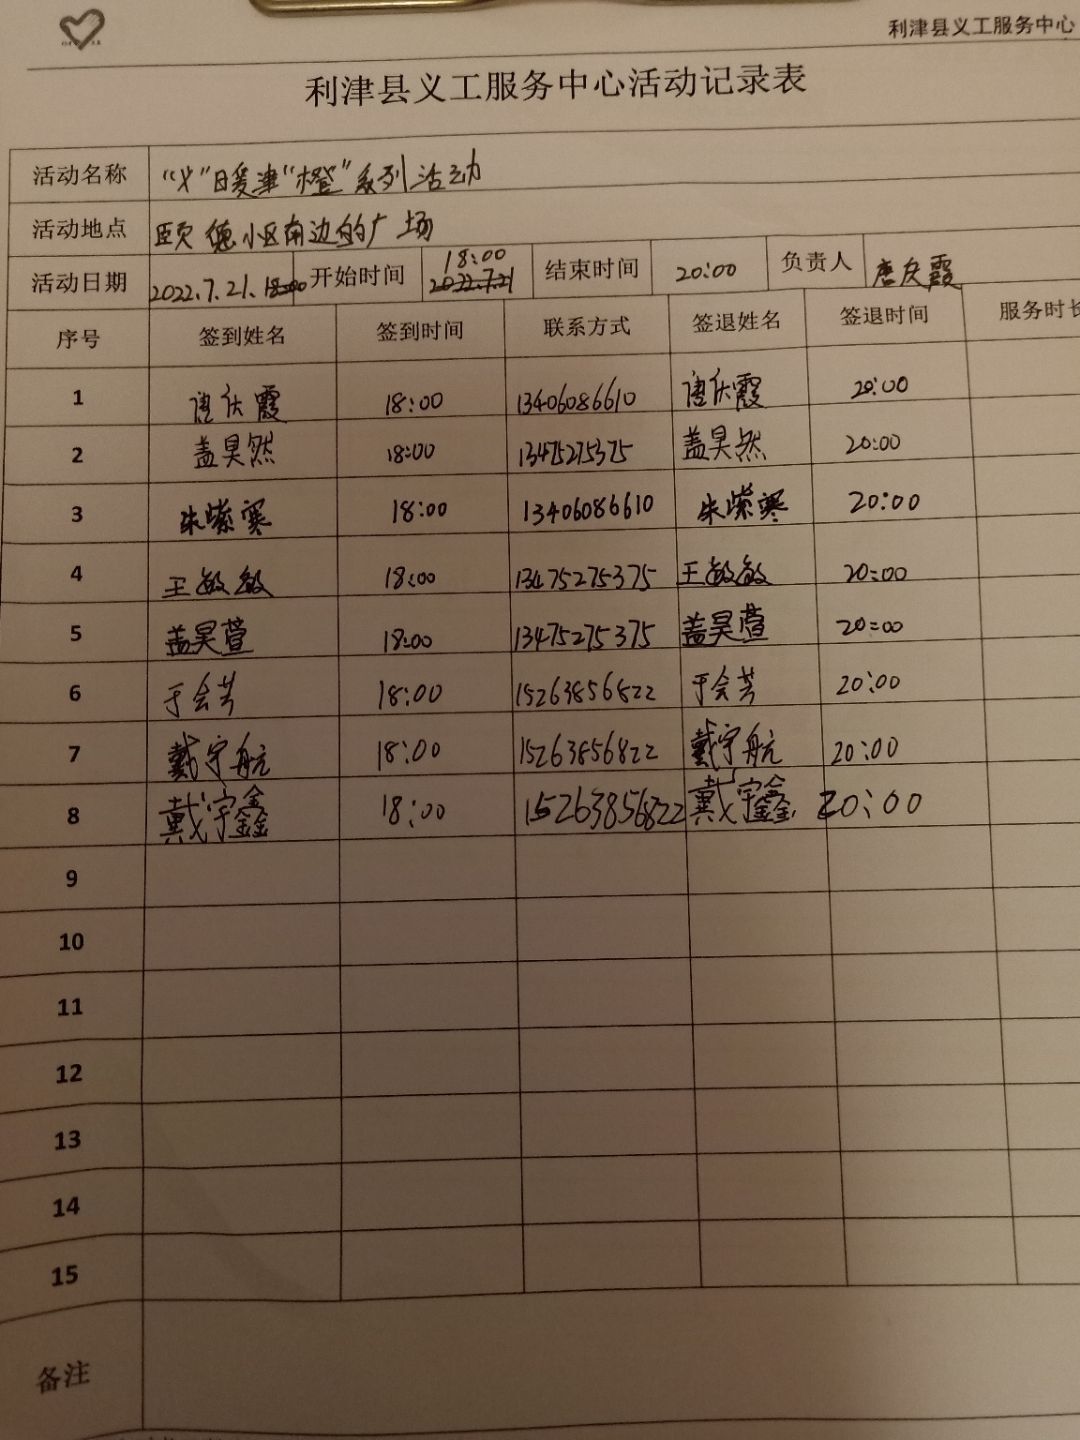 利津县义工服务中心
利津县义工服务中心活动记录表
活动名称 “义”日暖津“橙”系列活动
活动地点 颐德小区南边的广场
活动日期 2022.7.21. 开始时间 18:00 结束时间 20:00 负责人 唐庆霞
序号 签到姓名 签到时间 联系方式 签退姓名 签退时间 服务时长
1 唐庆霞 18:00 13406086610 唐庆霞 20:00
2 盖昊然 18:00 13475275375 盖昊然 20:00
3 朱紫寒 18:00 13406086610 朱紫寒 20:00
4 王敏敏 18:00 13475275375 王敏敏 20:00
5 盖昊萱 18:00 13475275375 盖昊萱 20:00
6 于会芳 18:00 15263856822 于会芳 20:00
7 戴宇航 18:00 15263856822 戴宇航 20:00
8 戴宇鑫 18:00 15263856822 戴宇鑫 20:00
9
10
11
12
13
14
15
备注